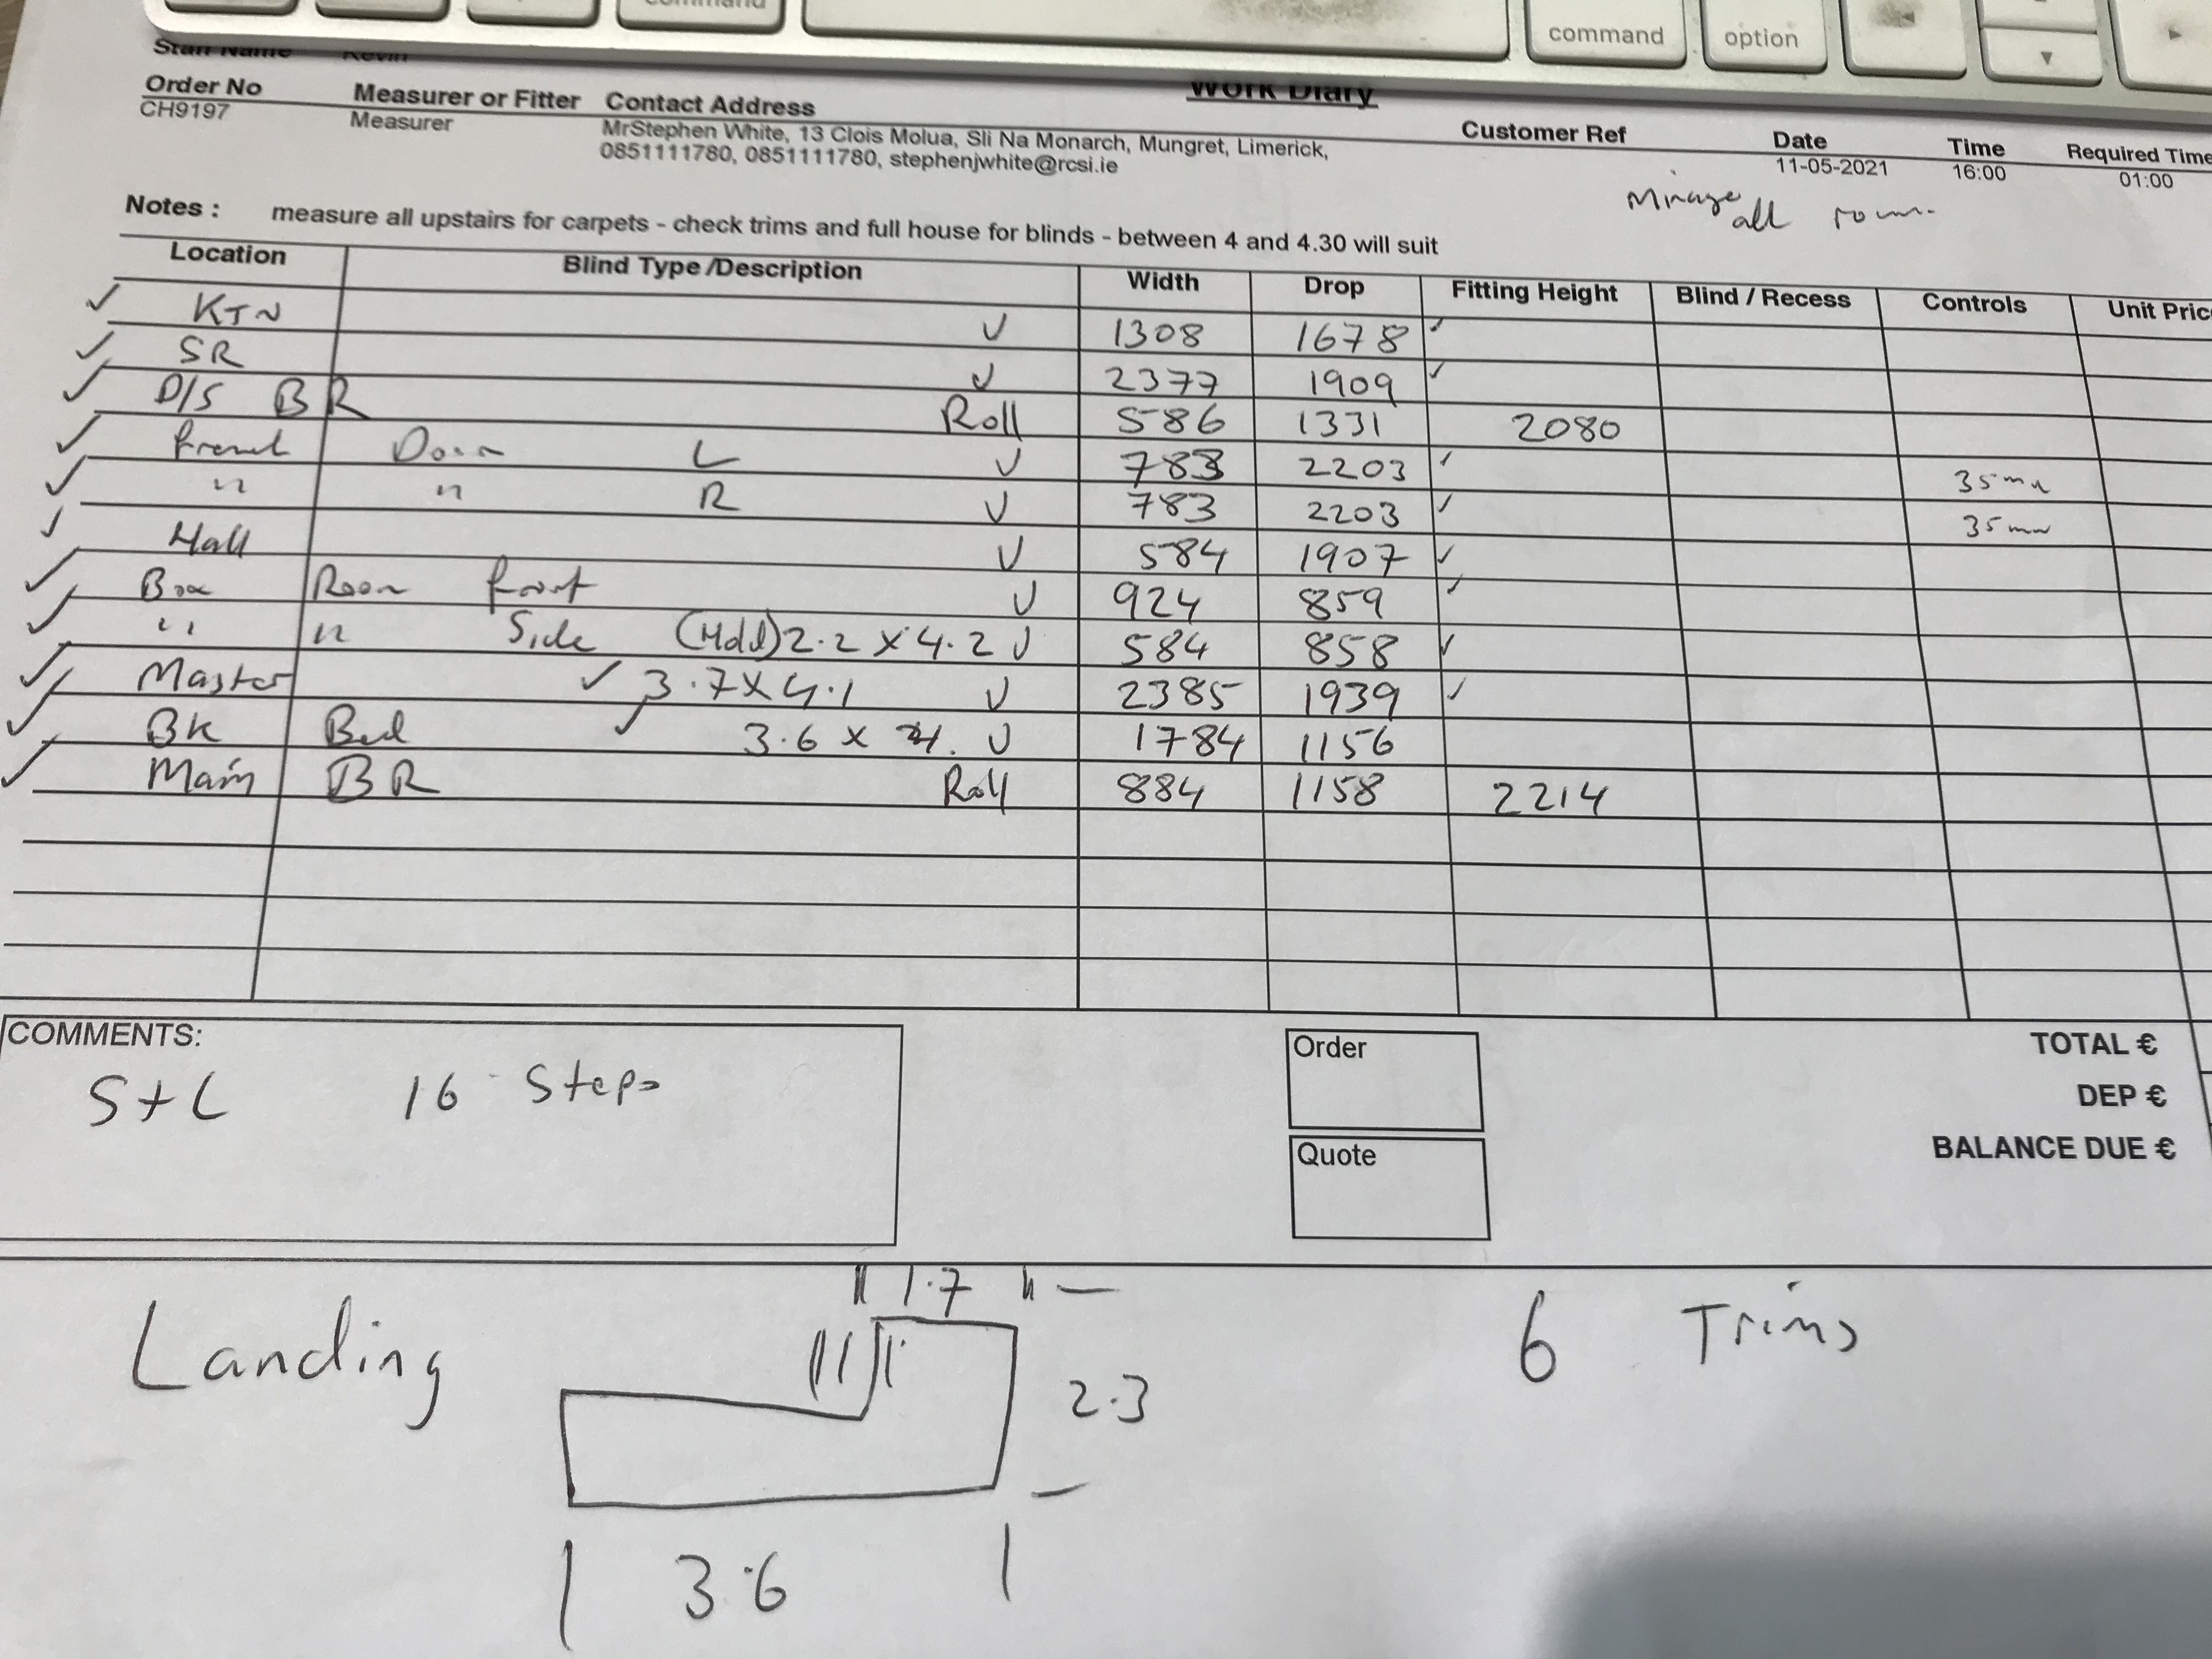 command
command option
Staff Name Kevin
Work Diary
Order No Measurer or Fitter Contact Address Customer Ref Date Time Required Time
CH9197 Measurer MrStephen White, 13 Clois Molua, Sli Na Monarch, Mungret, Limerick, 11-05-2021 16:00 01:00
0851111780, 0851111780, stephenjwhite@rcsi.ie
Mirage all room
Notes : measure all upstairs for carpets - check trims and full house for blinds - between 4 and 4.30 will suit
Location Blind Type /Description Width Drop Fitting Height Blind / Recess Controls Unit Pric
✓ KTN V 1308 1678 ✓
✓ SR V 2377 1909 ✓
✓ D/S BR Roll 586 1331 2080
✓ Door L V 783 2203 ✓ 35mm
✓ " " R V 783 2203 ✓ 35mm
✓ Hall V 584 1907 ✓
✓ Box Room front V 924 859 ✓
✓ " " Side 2.2 x 4.2 V 584 858 ✓
✓ Master ✓ 3.7 x 4.1 V 2385 1939 ✓
✓ BK Bed ✓ 3.6 x V 1784 1156
✓ Main BR Roll 884 1158 2214
COMMENTS:
S+L 16 Steps
Order
Quote
TOTAL €
DEP €
BALANCE DUE €
Landing
1.7
2.3
3.6
6 Trims